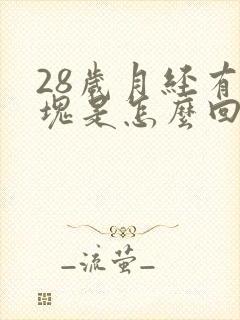 28歲月經有
塊是怎麼回
_流萤_